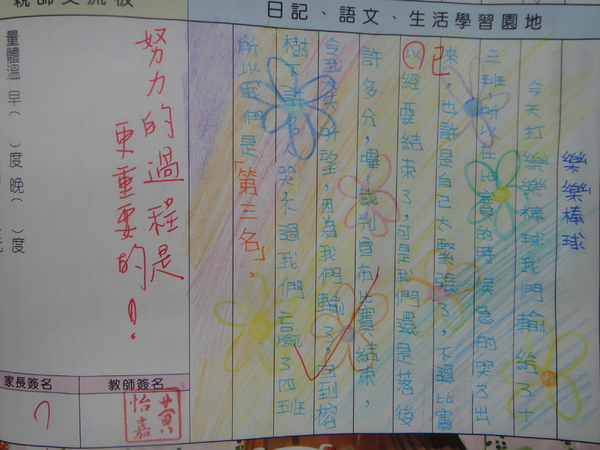 親師交流板
日記、語文、生活學習園地
樂樂棒球
今天打樂樂棒球我們輸給了十
三班,所以在比賽的時候急的哭了出
來,也許是自己太緊張了,不過比賽
以已經要結束了,可是我們還是落後
許多分,嗶!裁判宣布比賽結束,
令我失所望,因為我們輸了,回到榕
樹下許多哭,不過我們言贏了四班
所以我們是「第三名」。
努力的過程是
更重要的!
量體溫 早( )度 晚( )度
家長簽名
教師簽名
黃怡嘉